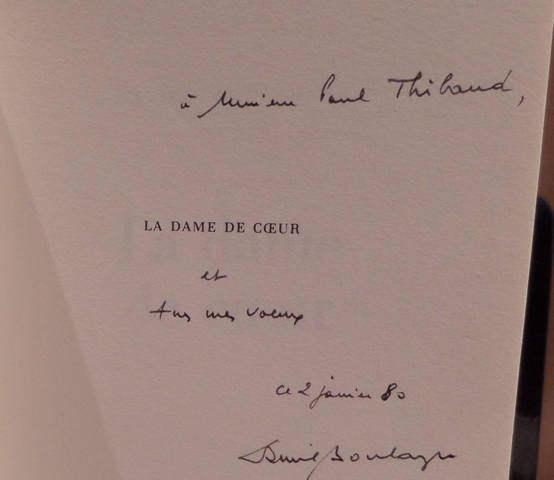 à Monsieur Paul Thibaud,
LA DAME DE CŒUR
et
tous mes voeux
ce 2 janvier 80
Daniel Boulanger